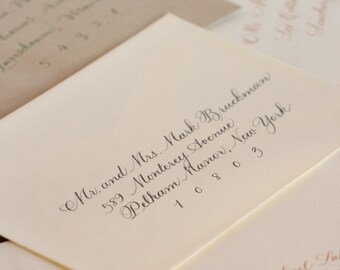 5 4 3 5 4
Mr. and Mrs. Mark Bruckman
589 Monterey Avenue
Pelham Manor, New York
1 0 8 0 3